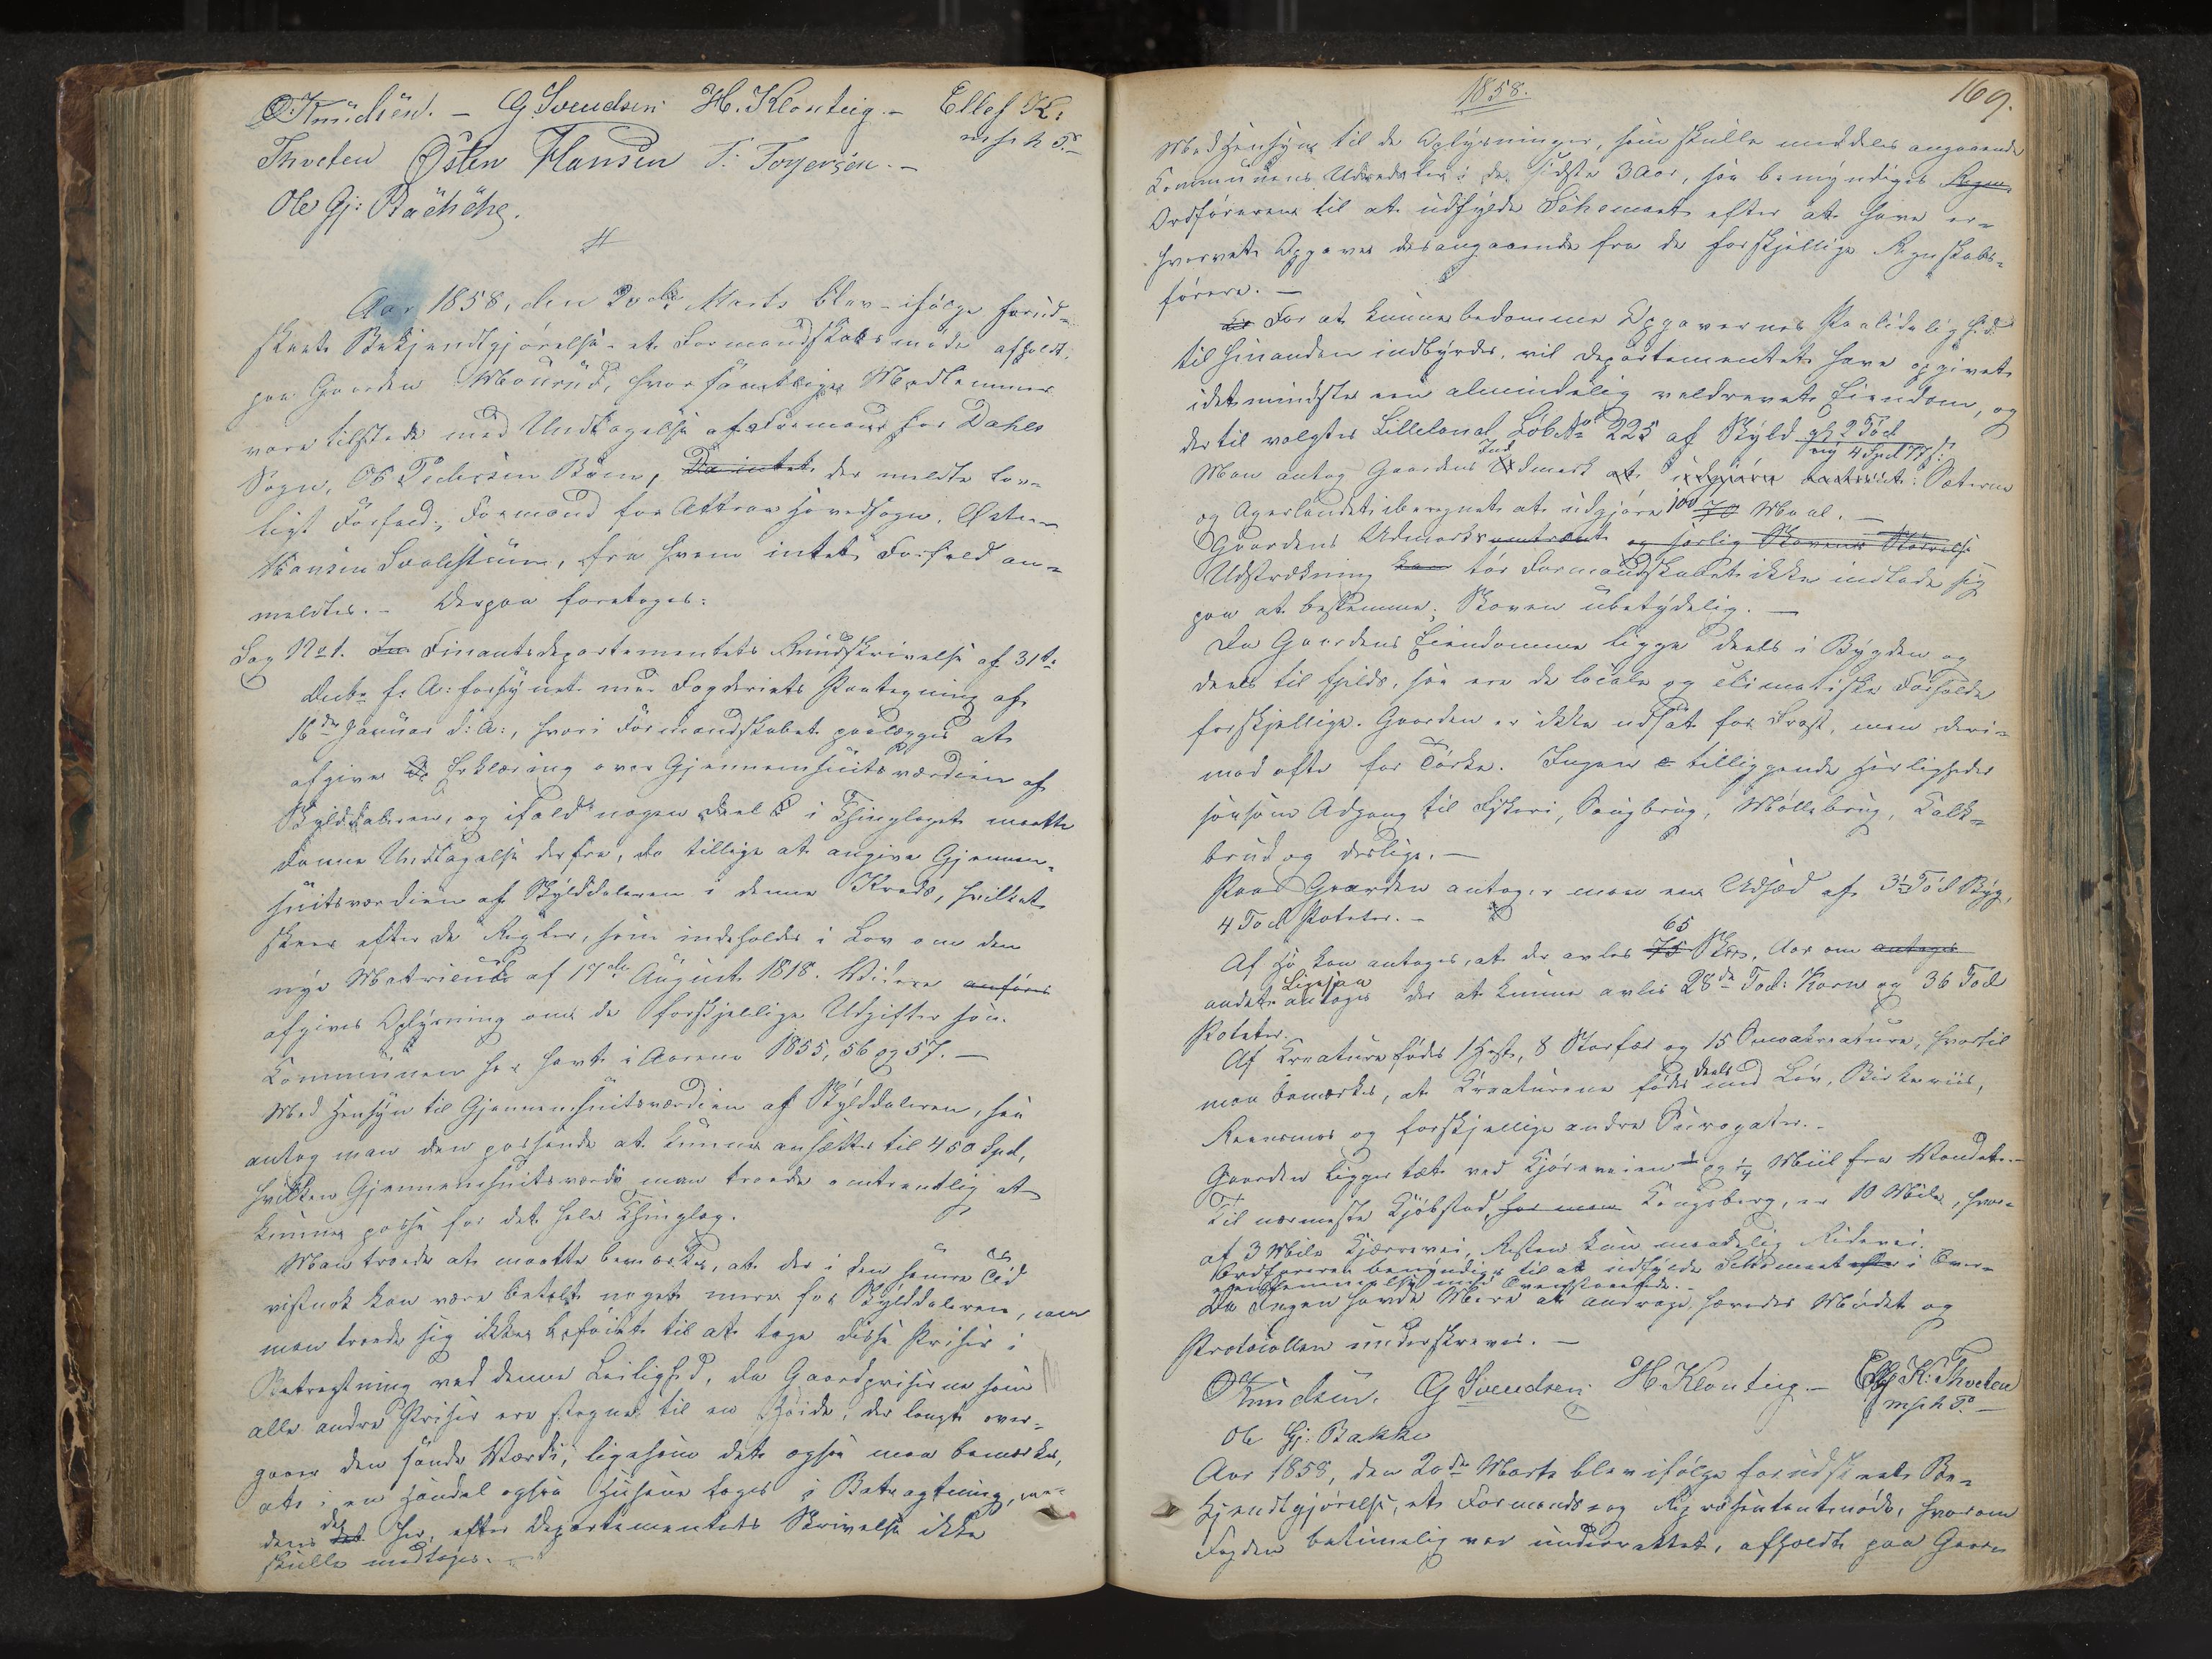 O Knudsen. – G Svendsen H. Klonteig. – Ellef K:
Thveten Østen Hansen T. Torjersen. – m f p h P. –
Ole Gj: Bachche.
Aar 1858, den 20de Marts blev – ifølge forud-
skeet Bekjendtgjørelse – et Formandskabsmøde afholdt
paa Gaarden Mourud, hvor samtlige Medlemmer
vare tilstede med Undtagelse af Formand for Dahls
Sogn, Ob Pedersen Bøen, Da intet der meldte lov-
ligt Forfald, Formand for Attraa Hovedsogn, Østen
Hansen, fra hvem intet Forfald an-
meldtes. – Derpaa foretoges:
Sag No 1. Finantsdepartementets Rundskrivelse af 31te
Decbr f: A: forsynet med Fogderiets Paategning af
16de Januar d: A:, hvori Formandskabet paalægges at
afgive Erklæring over Gjennemsnitsværdien af
Skylddaleren, og ifald nogen Deel i Thinglaget maatte
danne Undtagelse derfra, da tillige at angive Gjennem-
snitsværdien af Skylddaleren i denne Kreds, hvilket
skeer efter de Regler, som indeholdes i Lov om den
nye Matricul af 17de August 1818. Videre anføres
afgives Oplysning om de forskjellige Udgifter som
Communen har havt i Aarene 1855, 56 og 57. –
Med Hensyn til Gjennemsnitsværdien af Skylddaleren, saa
antog man den passende at kunne ansættes til 450 Spd,
hvilken Gjennemsnitsværdi man troede omtrentlig at
kunne passe for det hele Thinglag.
Man troede at maatte bemærke, at der i den senere Tid
vistnok kan være betalt noget mere for Skylddaleren, men
man troede sig ikke beføiet til at tage disse Priser i
Betragtning ved denne Leilighed, da Gaardpriserne som
alle andre Priser ere stegne til en Høide, der langt over-
gaaer den sande Værdi, ligesom det ogsaa maa bemærkes,
at i en Handel ogsaa Husene tages i Betragtning, me-
dens det her, efter Departementets Skrivelse ikke
skulle medtages. –
1858.
169.
Med Hensyn til de Oplysninger, som skulle meddeles angaaende
Communens Udredsler i de sidste 3 Aar, saa bemyndiges Regn
Ordføreren til at udfylde Schemaet efter at have er-
hvervet Opgaver desangaaende fra de forskjellige Regnskabs-
førere. –
For at kunne bedømme Opgavernes Paalidelighed
til hinanden indbyrdes, vil Departementet have opgivet
idetmindste een almindelig veldrevet Eiendom, og
dertil valgtes Lilleland Løb No 225 af Skyld gl. 2 Tød
ny 4 Spd 77 s:
Man antog Gaardens Indmark at udgjøre : Sæterne
og Agerlandet iberegnet at udgjøre 100 70 Maal. –
Gaardens Udmarks omtrent og særlig Skovens Størrelse
Udstrækning kan tør Formandskabet ikke indlade sig
paa at bestemme; Skoven ubetydelig. –
Da Gaardens Eiendomme ligge deels i Bygden og
deels til fjelds, saa ere de locale og climatiske Forholde
forskjellige. Gaarden er ikke udsat for Frost, men deri-
mod ofte for Tørke. Ingen tilliggende Herligheder
saasom Adgang til Fiskeri, Saugbrug, Møllebrug, Kalk-
brud og deslige. –
Paa Gaarden antager man en Udsæd af 3½ Tød Byg,
4 Tød Poteter. –
Af Hø kan antages, at der avles 75 65 Skpd, Aar om antages
andet Ligesaa antages der at kunne avles 28de Tød: Korn og 36 Tød
Poteter.
Af Kreature fødes 1 Hest, 8 Storfæ og 15 Smaakreature, hvortil
maa bemærkes, at Kreaturene fødes deels med Løv, Birkeriis,
Reensmos og forskjellige andre Surogater. –
Gaarden ligger tæt ved Kjøreveien og ¼ Miil fra Vandet. –
Til nærmeste Kjøbstad, har man Kongsberg, er 10 Mile, hvor-
af 3 Mile Kjærrevei, Resten kun maadelig Ridevei.
Ordføreren bemyndiges til at udfylde Schemaet efter i Over-
eensstemmelse med Ovenstaaende. –
Da Ingen havde Mere at andrage, hævedes Mødet og
Protocollen underskreves. –
O Knudsen. G Svendsen. H Klonteig – Ellef K: Thveten
m f p h P. –
Ole Gj: Bakke
Aar 1858, den 20de Marts blev ifølge forudskeet Be-
kjendtgjørelse, et Formands- og Repræsentantmøde, hvorom
Fogden betimelig var underrettet, afholdt paa Gaar-